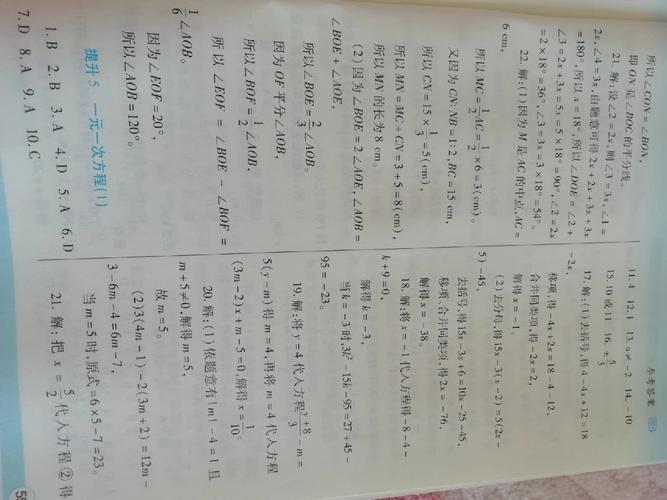 所以∠CON=∠BON,
即 ON 是∠BOC的平分线。
21. 解:设∠2=2x,则∠3=3x,∠1=
2x,∠4=3x,由题意可得 2x+2x+3x+3x
=180°,所以 x=18°,所以∠DOE=∠2+
∠3=2x+3x=5x=5×18°=90°,∠2=2x
=2×18°=36°,∠3=3x=3×18°=54°。
22. 解:(1)因为 M 是 AC 的中点,AC=
6 cm,
所以 MC=1/2AC=1/2×6=3(cm)。
又因为 CN∶NB=1∶2,BC=15 cm,
所以 CN=15×1/3=5(cm),
所以 MN=MC+CN=3+5=8(cm),
所以 MN 的长为 8 cm。
(2)因为∠BOE=2∠AOE,∠AOB=
∠BOE+∠AOE,
所以∠BOE=2/3∠AOB。
因为 OF 平分∠AOB,
所以∠BOF=1/2∠AOB,
所以∠EOF=∠BOE-∠BOF=
1/6∠AOB。
因为∠EOF=20°,
所以∠AOB=120°。
提升 5 一元一次方程(1)
1. B 2. B 3. A 4. D 5. A 6. D
7. D 8. A 9. A 10. C
参考答案
11. 4 12. 1 13. a≠-2 14. -10
15. 10 或 11 16. ±5/3
17. 解:(1)去括号,得 4-4x+12=18
-2x,
移项,得-4x+2x=18-4-12,
合并同类项,得-2x=2,
解得 x=-1。
(2)去分母,得15x-3(x-2)=5(2x-
5)-45,
去括号,得15x-3x+6=10x-25-45,
移项、合并同类项,得 2x=-76,
解得 x=-38。
18. 解:将 x=-1代入方程得-8-4-
k+9=0,
解得 k=-3,
当 k=-3 时,3k²-15k-95=27+45-
95=-23。
19. 解:将 y=4 代入方程y+8/3-m=
5(y-m)得 m=4,再将 m=4 代入方程
(3m-2)x+m-5=0,解得 x=1/10。
20. 解:(1)依题意有|m|-4=1 且
m+5≠0,解得 m=5,
故 m=5。
(2)3(4m-1)-2(3m+2)=12m-
3-6m-4=6m-7,
当 m=5 时,原式=6×5-7=23。
21. 解:把 x=5/2代入方程②得